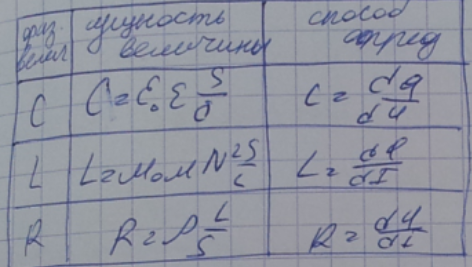 физ. велич сущность величины способ опред
C C = ε₀ ε S/d C = dq/dU
L L = μ₀ μ N² S/L L = dФ/dI
R R = ρ L/S R = dU/dI